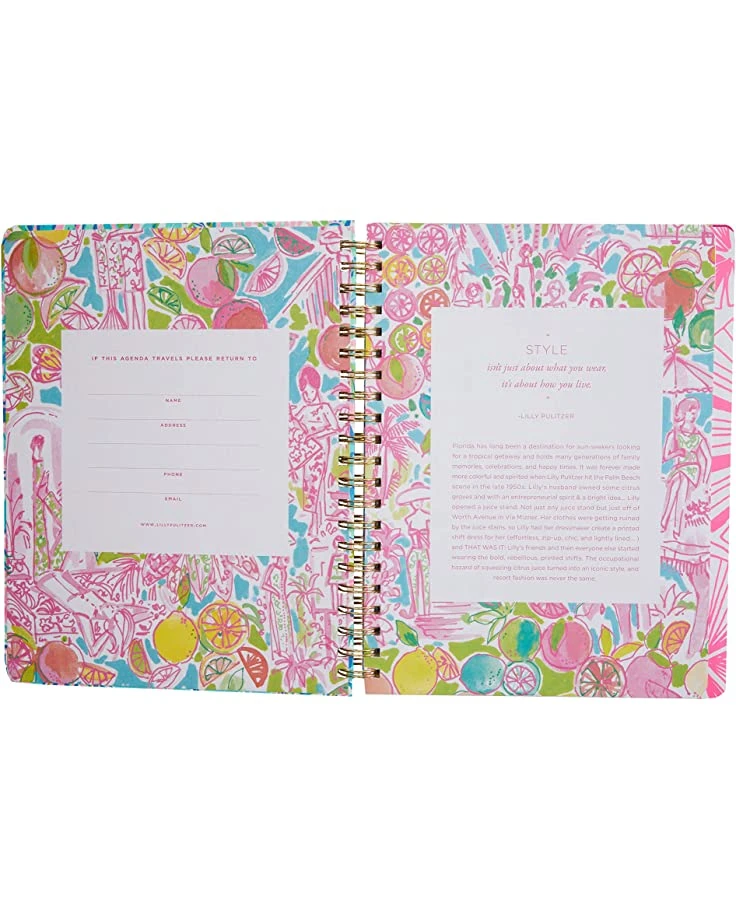 IF THIS AGENDA TRAVELS PLEASE RETURN TO
NAME
ADDRESS
PHONE
EMAIL
WWW.LILLYPULITZER.COM
STYLE
isn't just about what you wear,
it's about how you live.
-LILLY PULITZER
Florida has long been a destination for sun-seekers looking
for a tropical getaway and holds many generations of family
memories, celebrations, and happy times. It was forever made
more colorful and spirited when Lilly Pulitzer hit the Palm Beach
scene in the late 1950s. Lilly's husband owned some citrus
groves and with an entrepreneurial spirit & a bright idea... Lilly
opened a juice stand. Not just any juice stand but just off of
Worth Avenue in Via Mizner. Her clothes were getting ruined
by the juice stains, so Lilly had her dressmaker create a printed
shift dress for her (effortless, zip-up, chic, and lightly lined....)
and THAT WAS IT! Lilly's friends and then everyone else started
wearing the bold, rebellious, printed shifts. The occupational
hazard of squeezing citrus juice turned into an iconic style, and
resort fashion was never the same.